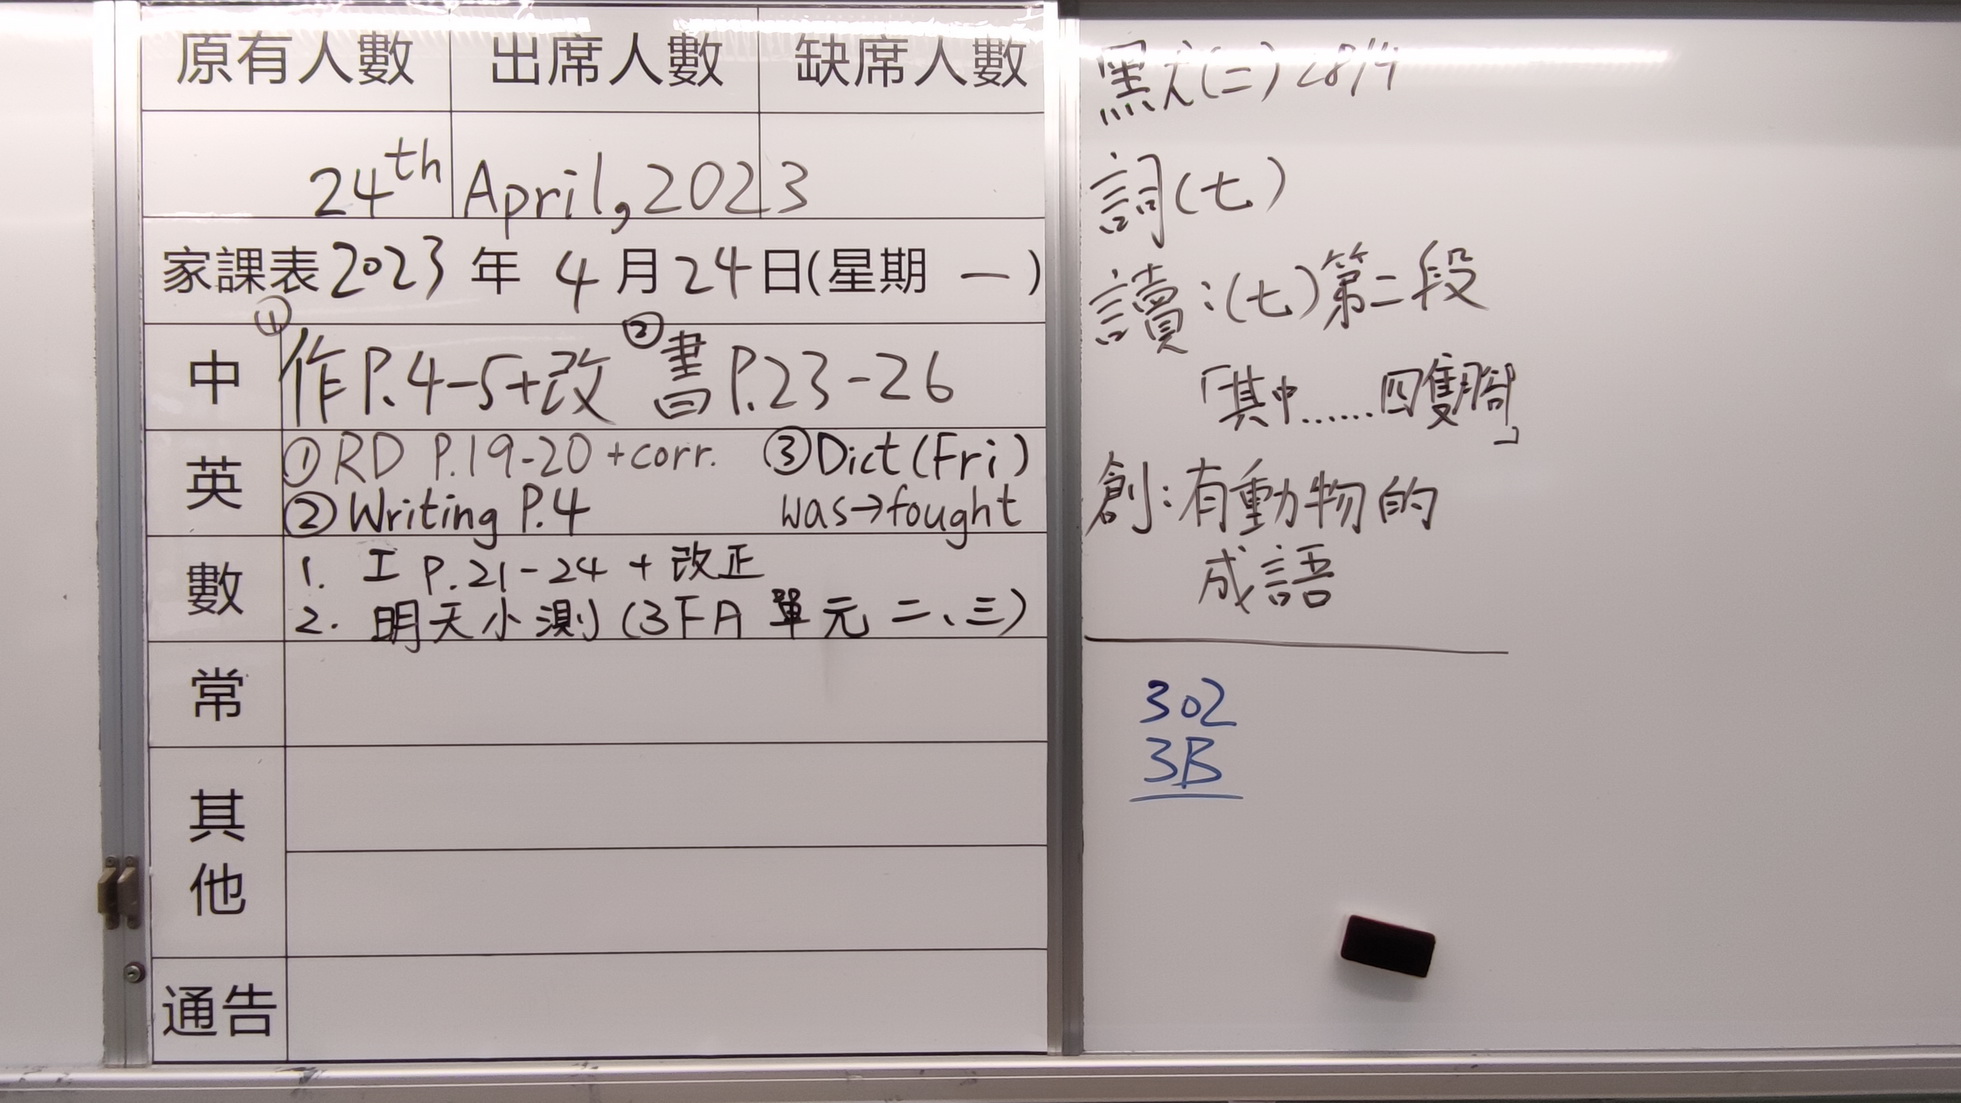 原有人數 出席人數 缺席人數
24th April, 2023
家課表 2023 年 4 月 24 日(星期 一)
中 ①作P.4-5+改 ②書P.23-26
英 ①RD P.19-20 +corr. ③Dict (Fri)
②Writing P.4 was→fought
數 1. 工 P.21-24 + 改正
2. 明天小測 (3下A 單元 二、三)
常
其他
通告
黑犬(二) 28/4
詞(七)
讀:(七)第二段
「其中......四隻腳」
創:有動物的
成語
302
3B